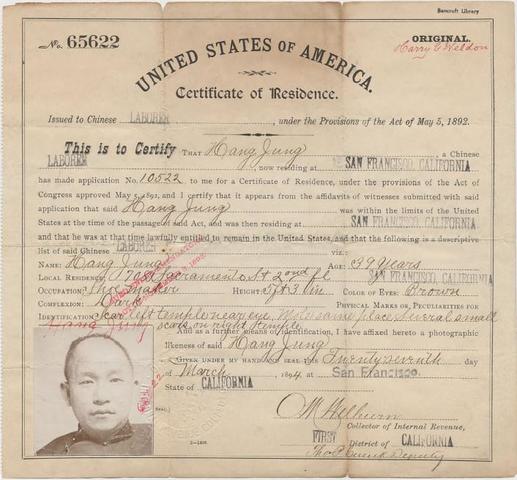 Bancroft Library
No. 65622
ORIGINAL.
UNITED STATES OF AMERICA.
Certificate of Residence.
Issued to Chinese LABORER, under the Provisions of the Act of May 5, 1892.
This is to Certify THAT Hang Jung, a Chinese
LABORER, now residing at SAN FRANCISCO, CALIFORNIA
has made application No. 10522 to me for a Certificate of Residence, under the provisions of the Act of
Congress approved May 5, 1892, and I certify that it appears from the affidavits of witnesses submitted with said
application that said Hang Jung was within the limits of the United
States at the time of the passage of said Act, and was then residing at SAN FRANCISCO, CALIFORNIA
and that he was at that time lawfully entitled to remain in the United States, and that the following is a descriptive
list of said Chinese LABORER viz.:
NAME: Hang Jung AGE: 39 Years
LOCAL RESIDENCE: 708 Sacramento St 2nd fl SAN FRANCISCO, CALIFORNIA
OCCUPATION: Shoemaker HEIGHT: 5 ft 3 1/4 in COLOR OF EYES: Brown
COMPLEXION: Dark PHYSICAL MARKS OR PECULIARITIES FOR
IDENTIFICATION: Scar left temple near eye, Mole same place, Several small
scars on right temple
Hang Jung
And as a further means of identification, I have affixed hereto a photographic
likeness of said Hang Jung
GIVEN UNDER MY HAND AND SEAL this Twenty seventh day
of March, 1894, at San Francisco,
State of CALIFORNIA
[SEAL.]
O M Welburn
Collector of Internal Revenue,
FIRST District of CALIFORNIA
Deputy